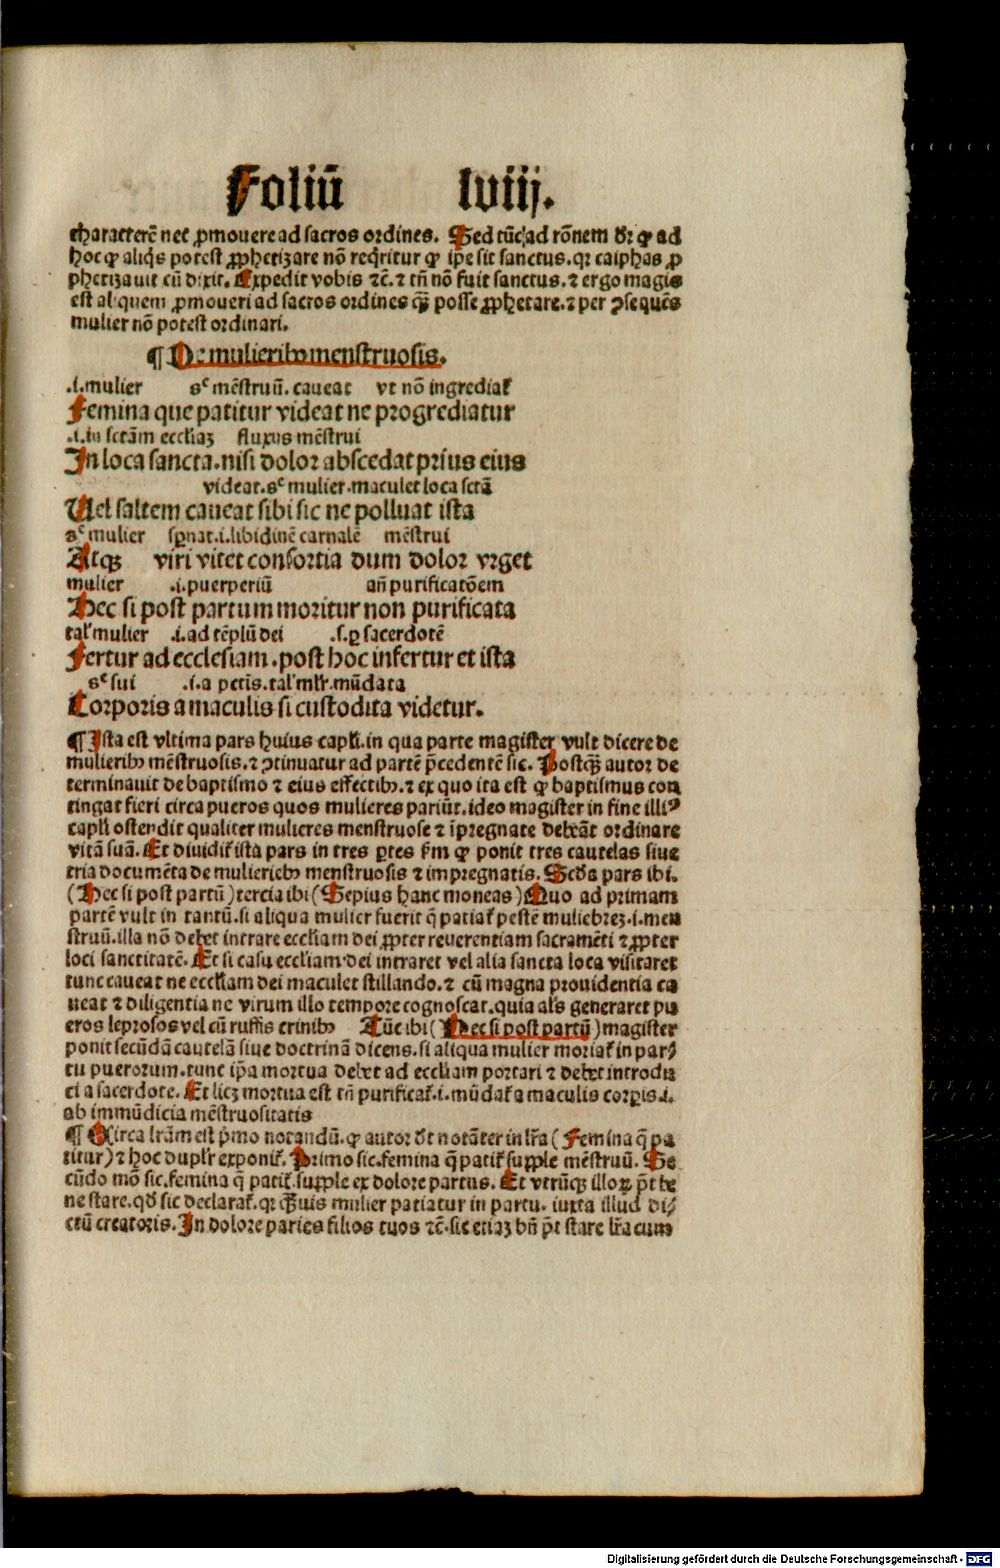 Foliū lviij.
characterē nec ꝓmouere ad sacros ordines. Sed tūc ad rōnem dr̄ ꝙ ad
hoc ꝙ aliq̇s potest ꝓphetizare nō reqͥritur ꝙ ip̄e sit sanctus. qꝛ caiphas ꝓ
phetizauit cū dixit. Expedit vobis ⁊c̄. ⁊ tn̄ nō fuit sanctus. ⁊ ergo magis
est aliquem ꝓmoueri ad sacros ordines qꝫ̄ posse ꝓphetare. ⁊ per ꝯsequēs
mulier nō potest ordinari.
¶ De mulieribꝰ menstruosis.
.i. mulier sᶜ mēstruū. caueat vt nō ingrediat᷑
Femina que patitur videat ne progrediatur
.i. in sctām eccliaꝫ fluxus mēstrui
In loca sancta. nisi dolor abscedat prius eius
videat. sᶜ mulier. maculet loca sctā
Uel saltem caueat sibi sic ne polluat ista
sᶜ mulier sꝑnat .i. libidinē carnalē mēstrui
Atqꝫ viri vitet consortia dum dolor vrget
mulier .i. puerperiū an̄ purificatōem
Hec si post partum moritur non purificata
tal' mulier .i. ad tēplū dei .s. ꝑ sacerdotē
Fertur ad ecclesiam. post hoc infertur et ista
sᶜ sui .i. a pctīs. tal' ml'r. mūdata
Corporis a maculis si custodita videtur.
¶ Ista est vltima pars huius capl'i. in qua parte magister vult dicere de
mulieribꝰ mēstruosis. ⁊ ꝯtinuatur ad partē p̄cedentē sic. Postqꝫ̄ autor de
terminauit de baptismo ⁊ eius effectibꝰ. ⁊ ex quo ita est ꝙ baptismus con
tingat fieri circa pueros quos mulieres pariūt. ideo magister in fine illiꝰ
capl'i ostendit qualiter mulieres menstruose ⁊ īpregnate debeāt ordinare
vitā suā. Et diuidit᷑ ista pars in tres ꝑtes fm̄ ꝙ ponit tres cautelas siue
tria documēta de mulieribꝰ menstruosis ⁊ impregnatis. Scd̄a pars ibi.
(Hec si post partū) tercia ibi (Sepius hanc moneas) Quo ad primam
partē vult in tantū. si aliqua mulier fuerit q̄ patiat᷑ pestē muliebreꝫ .i. men
struū. illa nō debet intrare eccliam dei ꝓpter reuerentiam sacramēti ⁊ ꝓpter
loci sanctitatē. Et si casu eccliam dei intraret vel alia sancta loca visitaret
tunc caueat ne eccliam dei maculet stillando. ⁊ cū magna prouidentia ca
ueat ⁊ diligentia ne virum illo tempore cognoscat. quia al's generaret pu
eros leprosos vel cū ruffis crinibꝰ Tūc ibi (Hec si post partū) magister
ponit secūdā cautelā siue doctrinā dicens. si aliqua mulier moriat᷑ in par⸗
tu puerorum. tunc ip̄a mortua debet ad eccliam portari ⁊ debet introdu
ci a sacerdote. Et licꝫ mortua est tn̄ purificat᷑ .i. mūdat᷑ a maculis corꝑis .i.
ab immūdicia mēstruositatis
¶ Circa lr̄am est p̄mo notandū. ꝙ autor dt̄ notāter in lr̄a (Femina q̄ pa
titur) ⁊ hoc dupl'r exponit᷑. Primo sic. femina q̄ patit᷑ supple mēstruū. Se
cūdo mō sic. femina q̄ patit᷑. supple ex dolore partus. Et vtrūqꝫ illoꝝ p̄t be
ne stare. qd̄ sic declarat᷑. qꝛ qꝫ̄uis mulier patiatur in partu. iuxta illud di⸗
ctū creatoris. In dolore paries filios tuos ⁊c̄. sic etiaꝫ bn̄ p̄t stare lr̄a cum
Digitalisierung gefördert durch die Deutsche Forschungsgemeinschaft - DFG